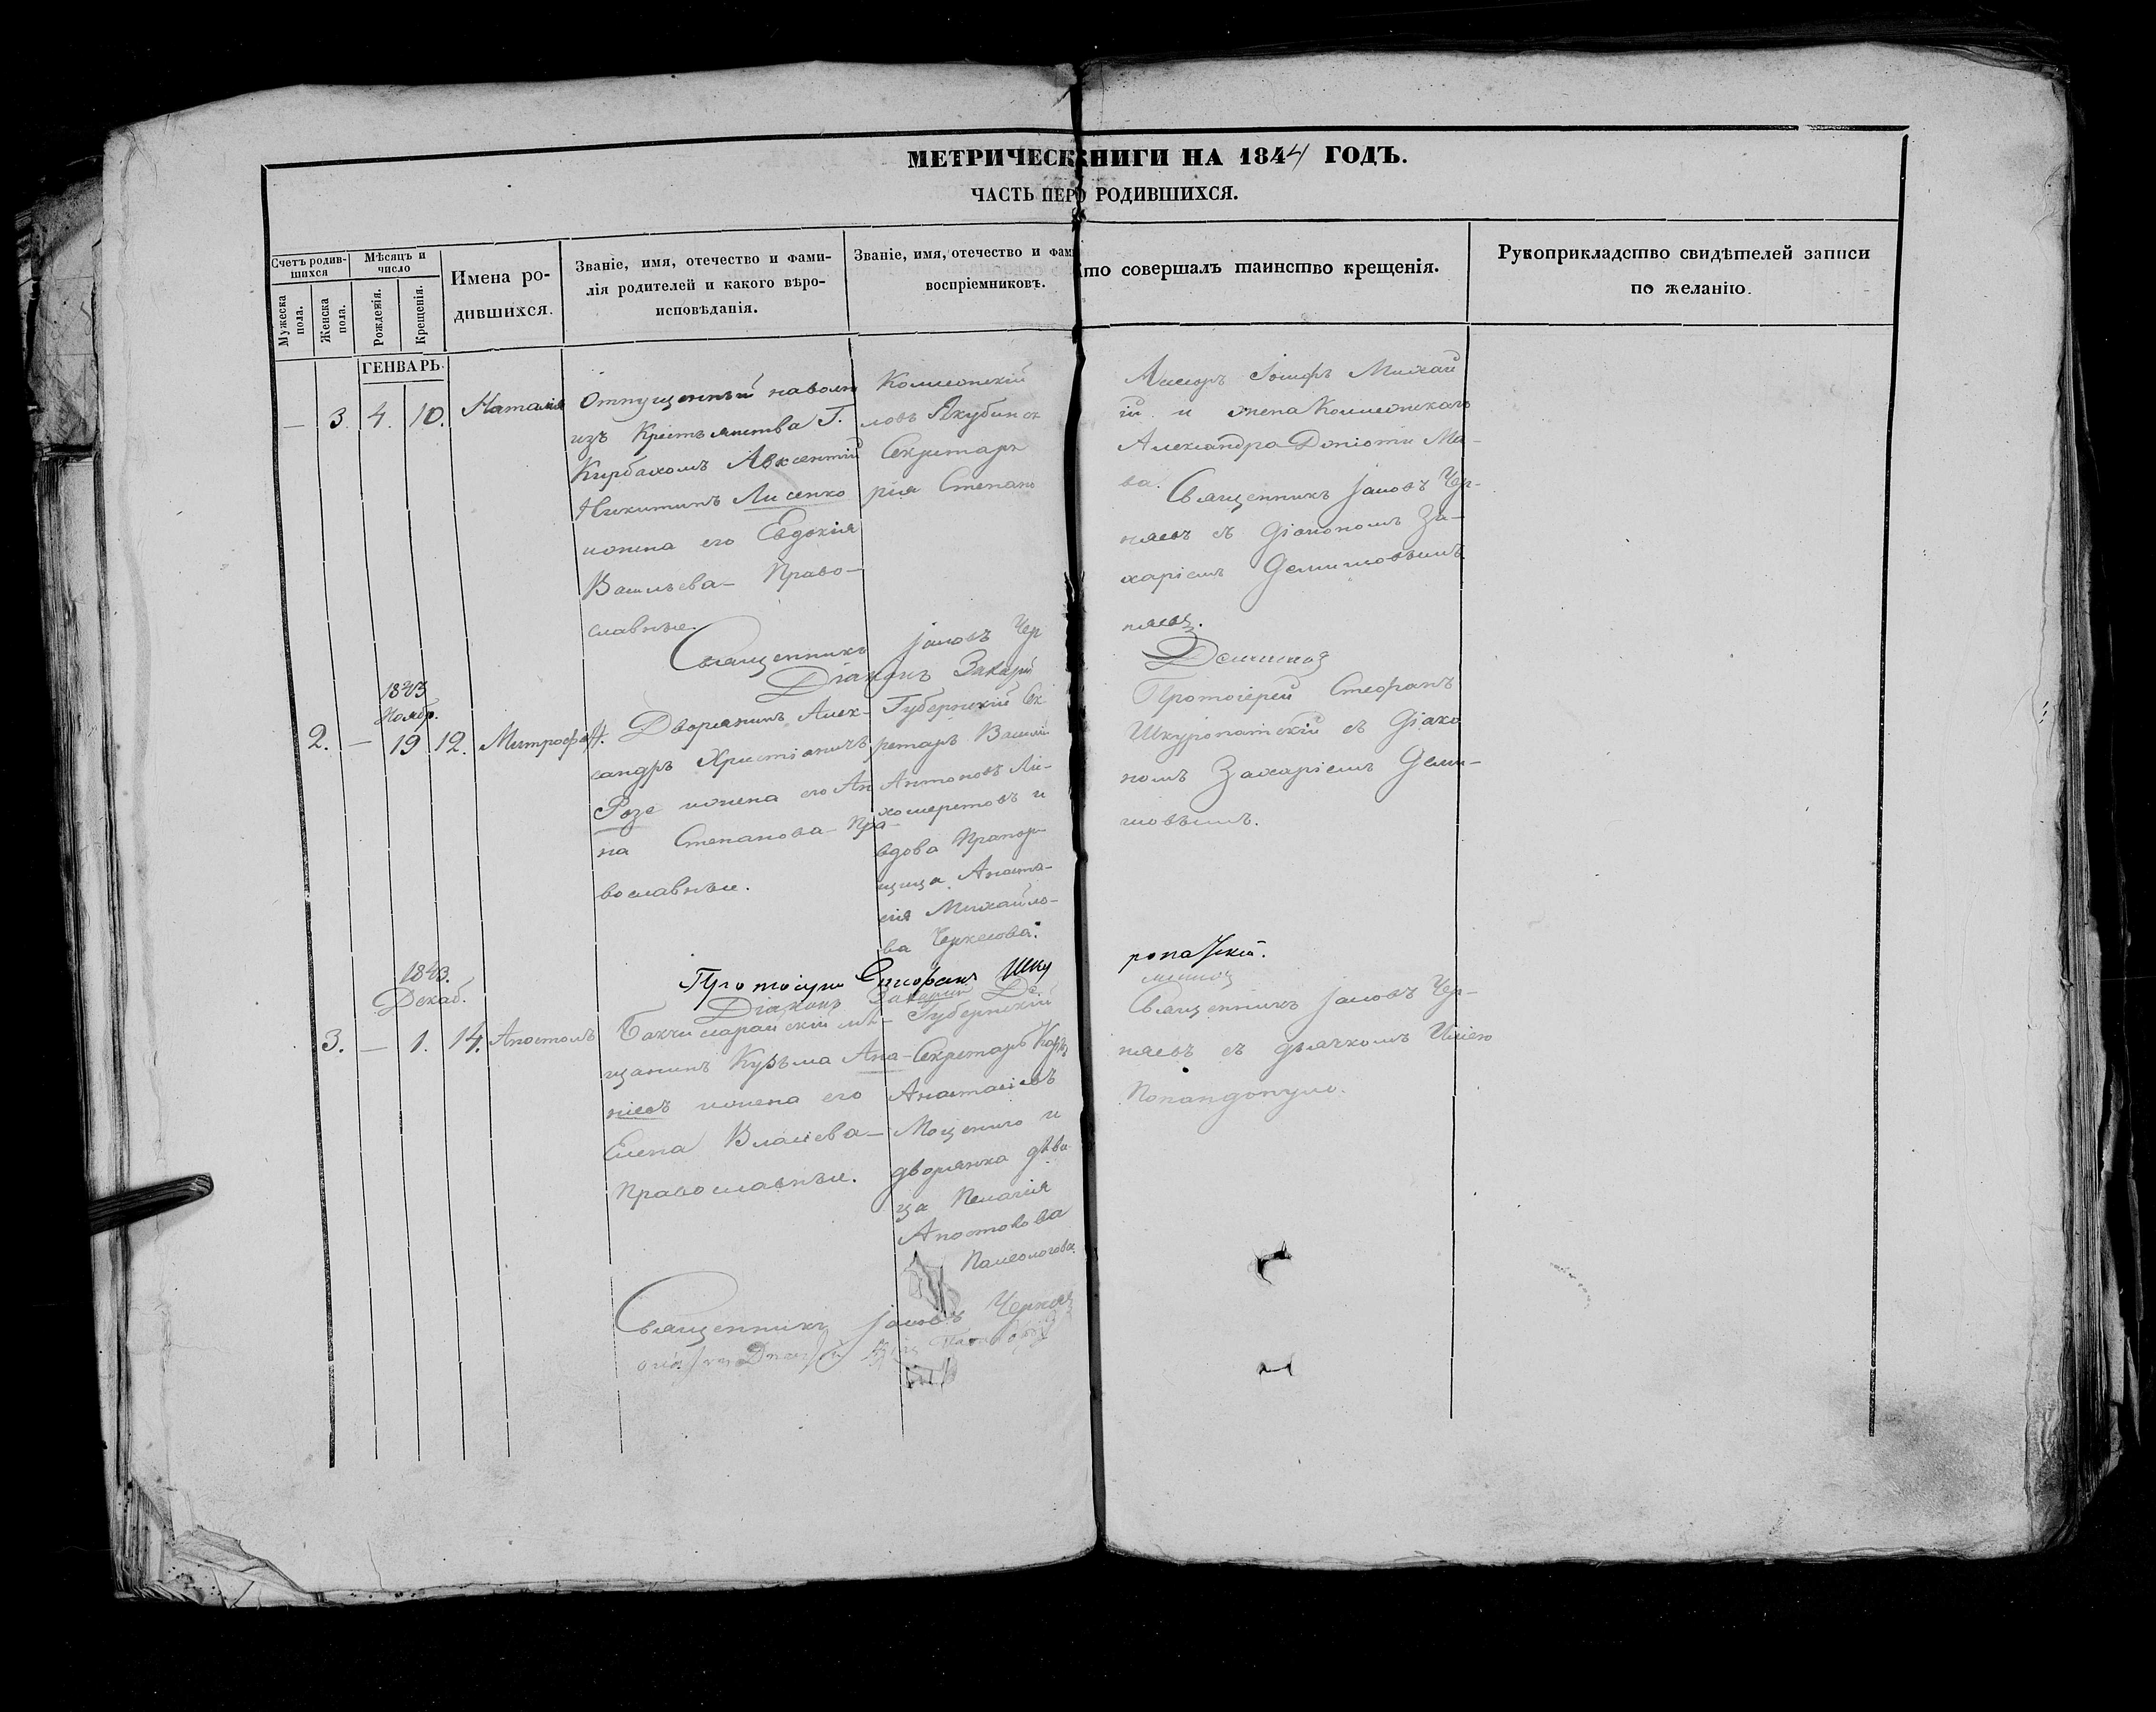 МЕТРИЧЕСК НИГИ НА 1844 ГОДЪ.
ЧАСТЬ ПЕР О РОДИВШИХСЯ.
Счетъ родив-
шихся
Мужеска
пола.
Женска
пола.
Мѣсяцъ и
число
Рожденія.
Крещенія.
Имена ро-
дившихся.
Званіе, имя, отечество и фами-
лія родителей и какого вѣро-
исповѣданія.
Званіе, имя, отечество и фам
воспріемниковъ.
то совершалъ таинство крещенія.
Рукоприкладство свидѣтелей записи
по желанію.
ГЕНВАРЬ.
— 3. 4. 10. Наталія
Отпущенный на волю
изъ Крестьянства Г.
Кирбахомъ Авксентій
Никитинъ Лисенко
и жена его Евдокія
Васильева — Право-
славные.
Колежскій
ловъ Якубинск
Секретаря
рія Степано
Ассесоръ Іосифъ Михай
ій и жена Колежскаго
Александра Ма-
ва.
Священникъ Іаковъ Чер-
няевъ съ Діакономъ За-
харіемъ
Священникъ Іаковъ Чер
няевъ.
Діаконъ Захарій
1843
Ноябр.
2. — 19 12. Митрофанъ.
Дворянинъ Алек-
сандръ Христіаничъ
Розе и жена его Ан
на Степанова Пра-
вославные.
Губернскій Се
кретарь Василій
Антоновъ Ли-
хошерстовъ и
вдова Прапор-
щица Анаста-
сія Михайло-
ва Черкесова.
Протоіерей Стефанъ
Шкуропатскій съ Діако
номъ Захаріемъ
Протоіерей Стефанъ Шку
ропатскій.
Діаконъ Захарій
1843.
Декаб.
3. — 1. 14. Апостолъ
Бакчисарайскій мѣ-
щанинъ Кузьма Ана-
ніевъ и жена его
Елена Власіева —
Православные.
Губернскій
Секретарь
Анастасіевъ
Моцениго и
дворянка дѣви
ца Пелагія
Апостолова
Палеологова.
Священникъ Іаковъ Чер-
няевъ съ дьячкомъ Иліею
Попандопуло.
Священникъ Іаковъ Черняев